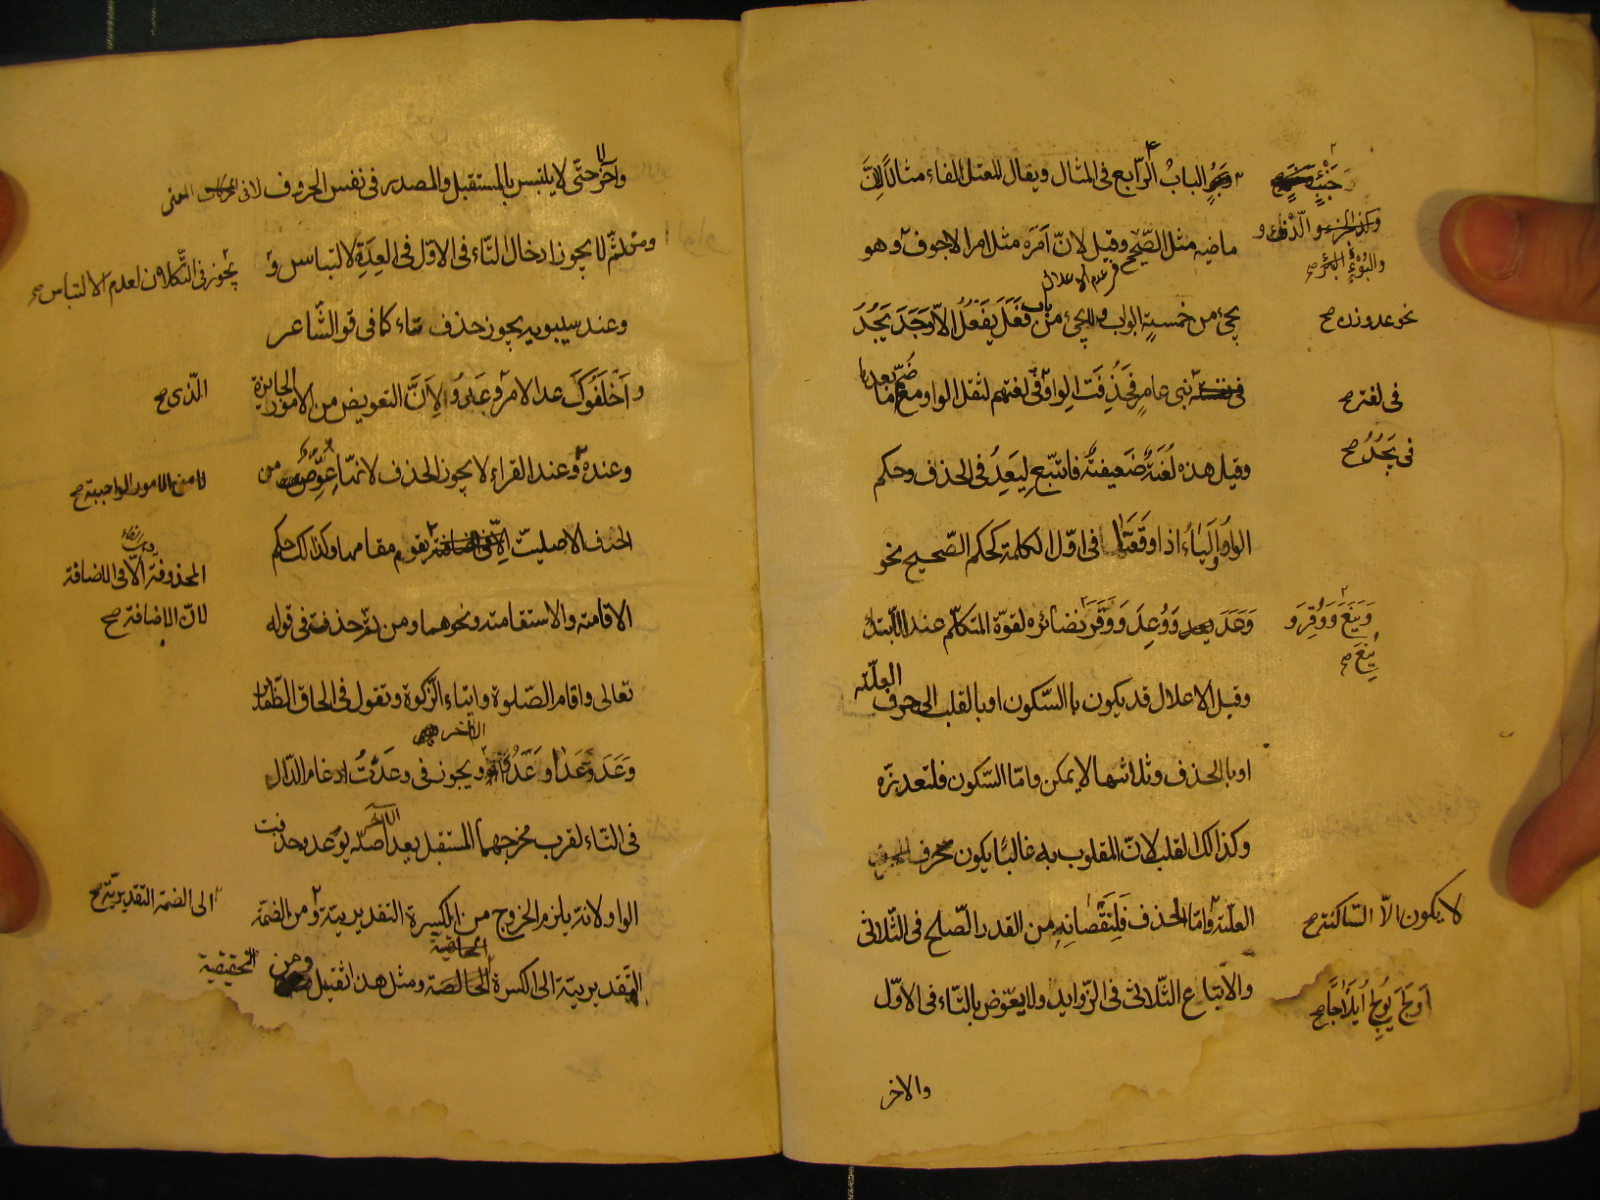 الباب الرّابع فى المثال ويقال للمعتل الفاء مثالاً لانّ
ماضيه مثل الصّحيح وقيل لانّ اَمرَه مثل امر الاجوف وهو
فى عدم الاعلال
يجئ من خمسة ابواب ولا يجئ من باب فَعَلَ يَفْعُلُ الاّ وَجَدَ يَجُدُ
فى بنى عامر فحُذِفَت الواو فى لغتهم لثقل الواو مع ضمّ ما بعدها
وقيل هذه لُغَةٌ ضَعيفةٌ فاتبع لِيَعِدُ فى الحذف وحكم
الواو والياء اذا وقعتا فى اوّل الكلمة كحكم الصّحيح نحو
وَعَدَ وَوُعِدَ وَوَقَرَ نضائره لقوّة المتكلّم عند الابتداء
وقيل الاعلال قد يكون بالسّكون او بالقلب الى حرف العلّة
او بالحذف وثلاثتها لا يمكن وامّا السّكون فلتعذره
وكذالك القلب لانّ المقلوب به غالبًا يكون بحرف
العلّة وامّا الحذف فَلِنُقْصَانِهِ من القدر الصّلح فى الثّلاثى
والاتباع الثّلاثى فى الزّوايد ولا يعوّض بالتّاء فى الاوّل
والاخر
وكذا الجزء والدّفؤ
نحو عد وزن صح
فى لغته صح
فى يَجُدُ صح
وَيَنَعَ وَوُقِرَ و
يُنِعَ صح
لا يكون الاّ السّاكنة صح
اَوْلَجَ يُولِجُ اِيلاَجًا صح
ولا آخر حتّى لا يلتبس بالمستقبل والمصدر فى نفس الحروف لا فى الحركات
ومن ثمّ لا يجوز ادخال التّاء فى الاوّل فى العِدَةِ لالتباس و
يجوز فى التُّكلان لعدم الالتباس صح
وعند سيبويه يجوز حذف تاء كما فى قول الشّاعر
وَاَخْلَفُوكَ عد الامر وَعَدُوا لاَنَّ التعويض من الامور الجايزة
الّذى صح
وعنده وعند الفراء لا يجوز الحذف لانّها عُوِّضَت من
لا من الامور الواجبة صح
الحذف الاصليّة يقوم مقامها وكذالك حكم
المحذوفة الاّ فى الاضافة
لانّ الاضافة صح
الاقامة والاستقامة ونحوهما ومن ثمّ حذفت فى قوله
تعالى واقام الصّلوة وايتاء الزّكوة وتقول فى الحاق الضّماير
وَعَدَ وَعَدَا وَعَدُوا الى آخره ويجوز فى وعدتُ ادغام الدّال
فى التّاء لقرب مخرجهما المستقبل يعد اصله يوعد حذفت
الواو لانّه يلزم الخروج من الكسرة التقديريّة ومن الضمّة
الى الضمة التّقديريّة صح
التّقديريّة الى الكسرة الخالصة ومثل هذا ثقيل ومن
الحقيقية